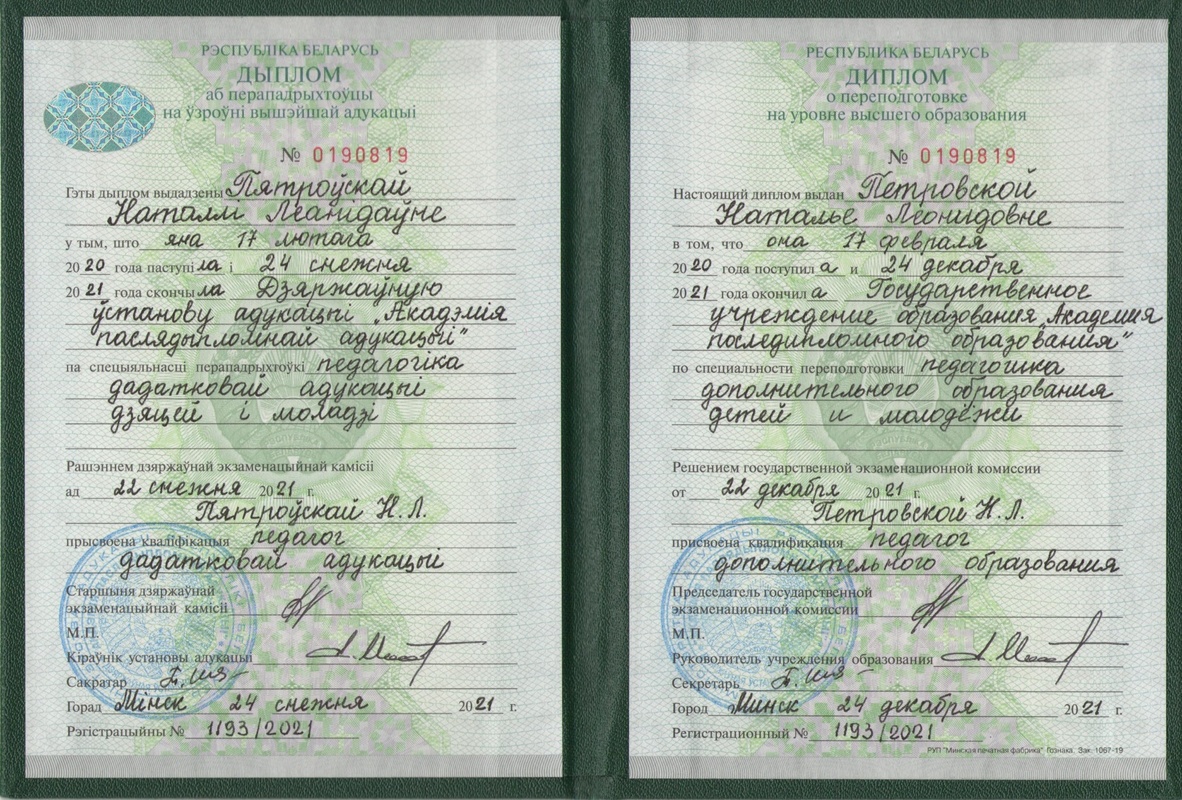 РЭСПУБЛІКА БЕЛАРУСЬ
ДЫПЛОМ
аб перападрыхтоўцы
на ўзроўні вышэйшай адукацыі
№ 0190819
Гэты дыплом выдадзены Пятроўскай
Наталлі Леанідаўне
у тым, што яна 17 лютага
2020 года паступіла і 24 снежня
2021 года скончыла Дзяржаўную
ўстанову адукацыі „Акадэмія
паслядыпломнай адукацыі"
па спецыяльнасці перападрыхтоўкі педагогіка
дадатковай адукацыі
дзяцей і моладзі
Рашэннем дзяржаўнай экзаменацыйнай камісіі
ад 22 снежня 2021 г.
Пятроўскай Н.Л.
прысвоена кваліфікацыя педагог
дадатковай адукацыі
Старшыня дзяржаўнай
экзаменацыйнай камісіі
М.П.
Кіраўнік установы адукацыі
Сакратар
Горад Мінск 24 снежня 2021 г.
Рэгістрацыйны № 1193/2021
РЕСПУБЛИКА БЕЛАРУСЬ
ДИПЛОМ
о переподготовке
на уровне высшего образования
№ 0190819
Настоящий диплом выдан Петровской
Наталье Леонидовне
в том, что она 17 февраля
2020 года поступила и 24 декабря
2021 года окончила Государственное
учреждение образования „Академия
последипломного образования"
по специальности переподготовки педагогика
дополнительного образования
детей и молодёжи
Решением государственной экзаменационной комиссии
от 22 декабря 2021 г.
Петровской Н.Л.
присвоена квалификация педагог
дополнительного образования
Председатель государственной
экзаменационной комиссии
М.П.
Руководитель учреждения образования
Секретарь
Город Минск 24 декабря 2021 г.
Регистрационный № 1193/2021
РУП "Минская печатная фабрика" Гознака. Зак. 1067-19